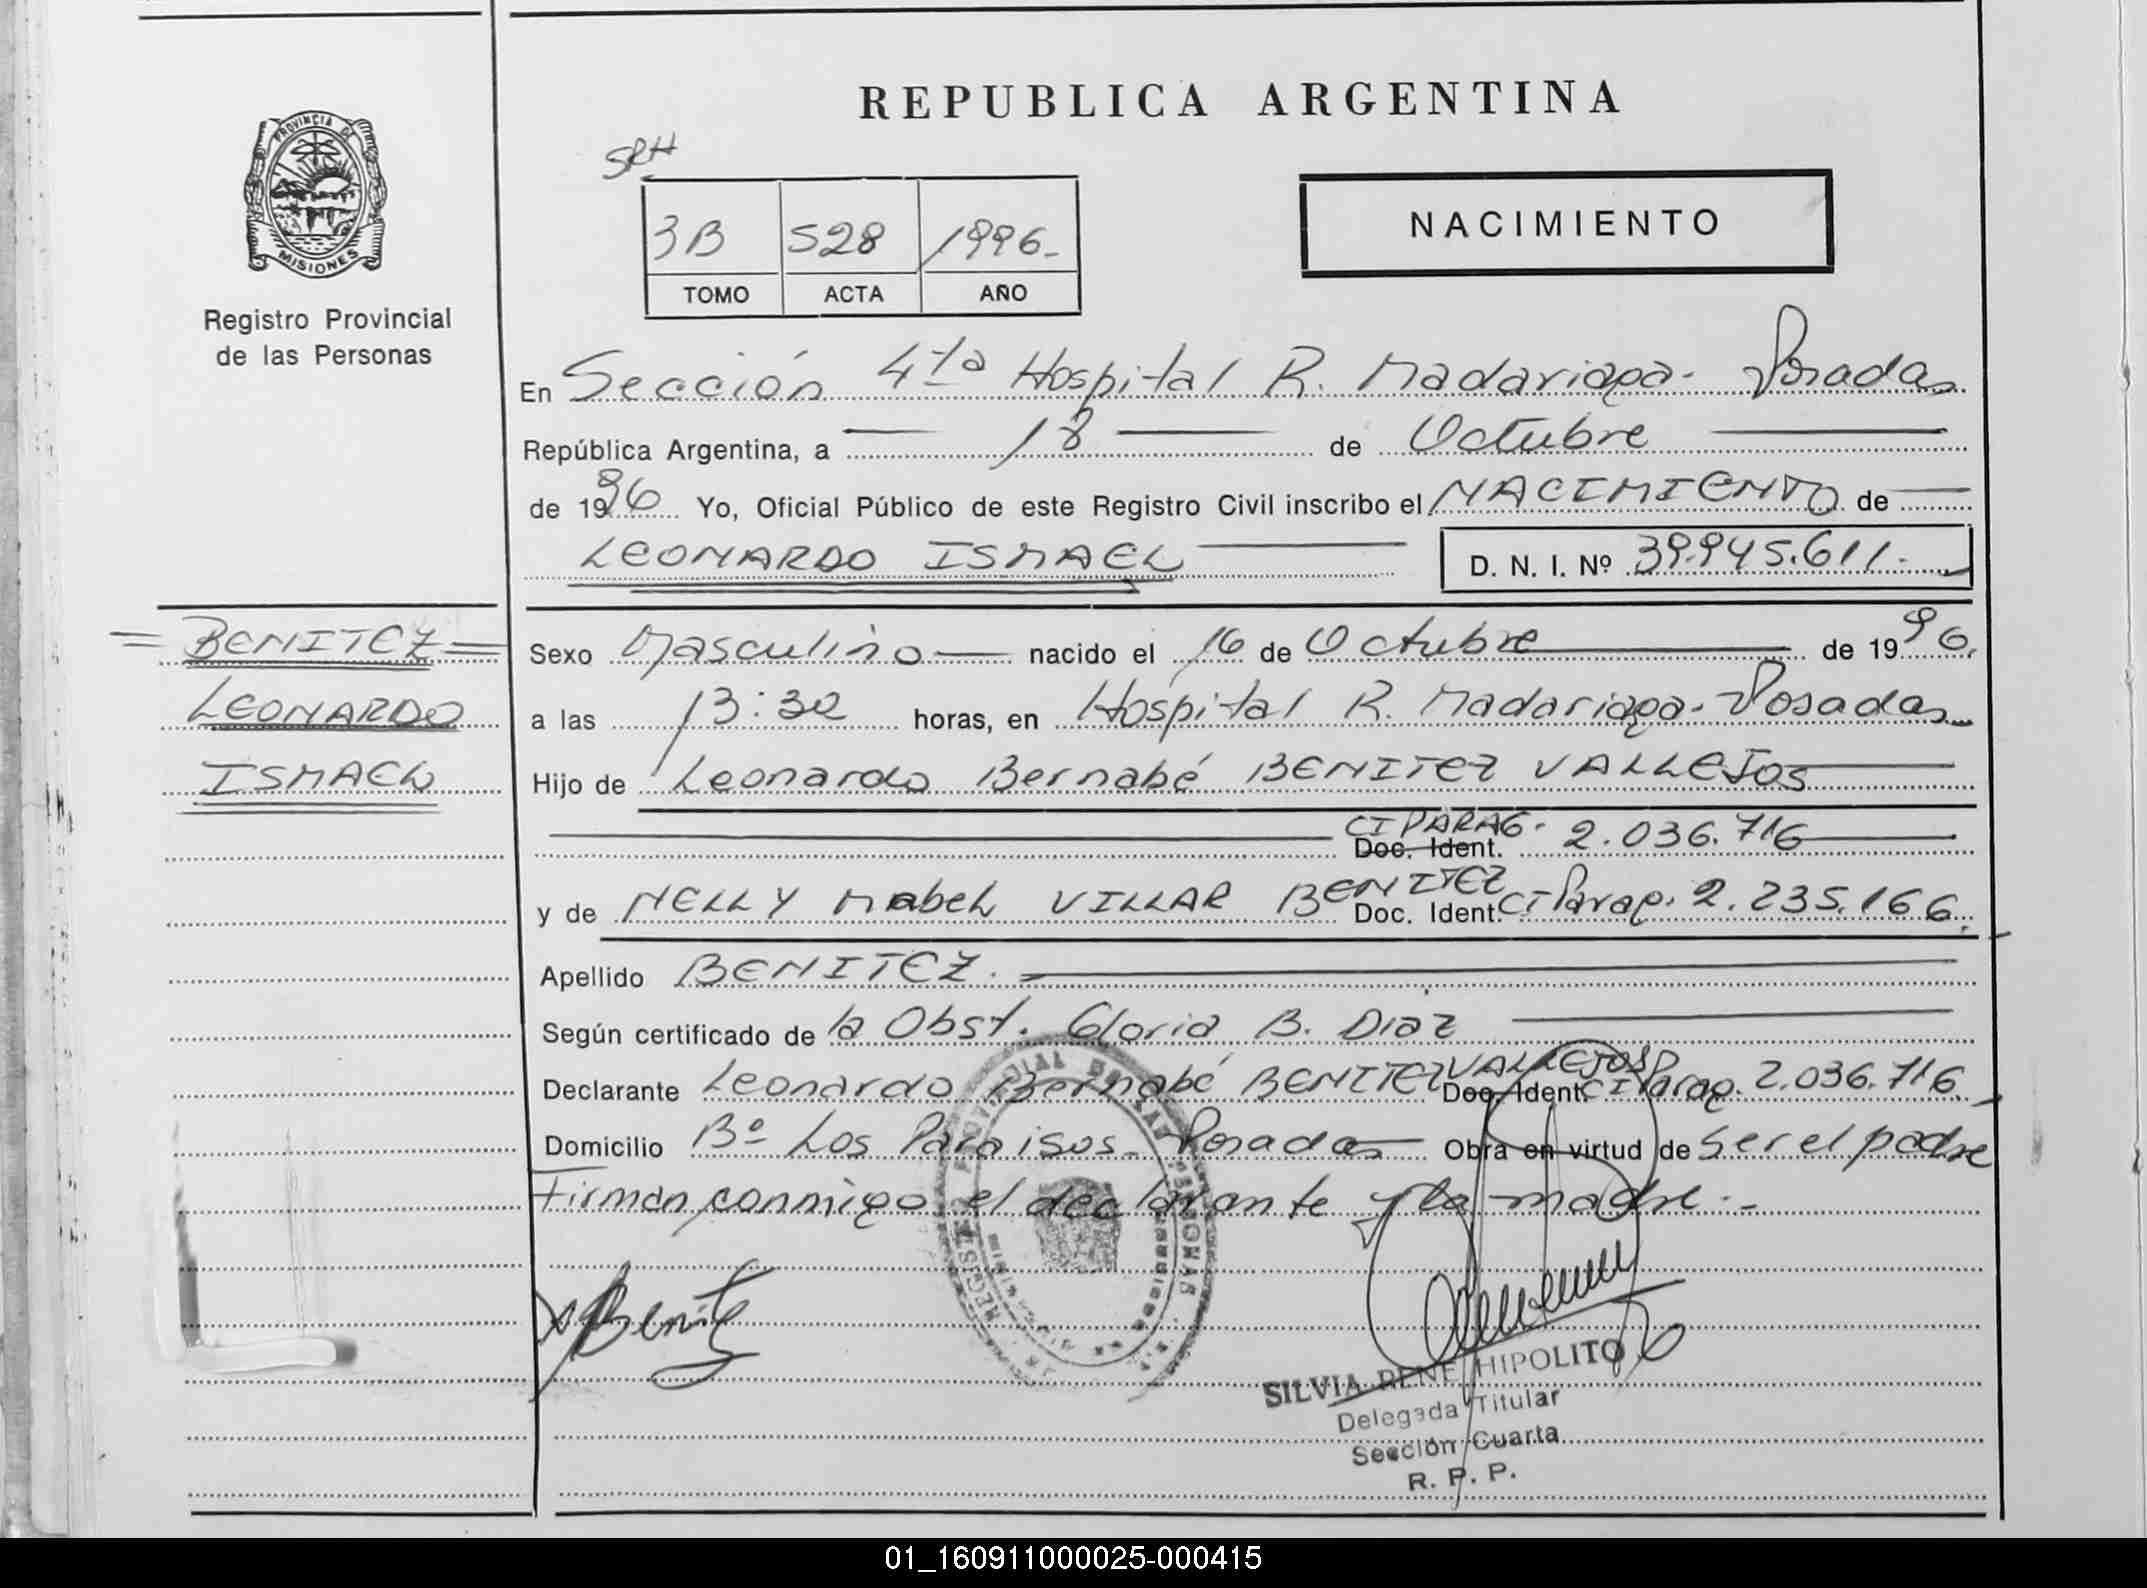 REPUBLICA ARGENTINA
PROVINCIA DE
MISIONES
Registro Provincial
de las Personas
SRH
3B 528 1996.-
TOMO ACTA AÑO
NACIMIENTO
En Sección 4ta Hospital R. Madariaga - Posadas
República Argentina, a 18 de Octubre
de 1996 Yo, Oficial Público de este Registro Civil inscribo el NACIMIENTO de
LEONARDO ISMAEL D. N. I. Nº 39.945.611.-
= BENITEZ =
LEONARDO
ISMAEL
Sexo Masculino nacido el 16 de Octubre de 1996.
a las 13:30 horas, en Hospital R. Madariaga - Posadas
Hijo de Leonardo Bernabé BENITEZ VALLEJOS
CI PARAG. Doc. Ident. 2.036.716
y de NELLY Mabel VILLAR BENITEZ Doc. Ident. CI Parag. 2.235.166.
Apellido BENITEZ.
Según certificado de la Obst. Gloria B. Diaz
Declarante Leonardo Bernabé BENITEZ VALLEJOS Doc. Ident. CI Parag. 2.036.716.
Domicilio Bº Los Paraisos - Posadas Obra en virtud de ser el padre
Firman conmigo el declarante y la madre.-
Benitez
SILVIA RENE HIPOLITO
Delegada Titular
Sección Cuarta
R. P. P.
01_160911000025-000415